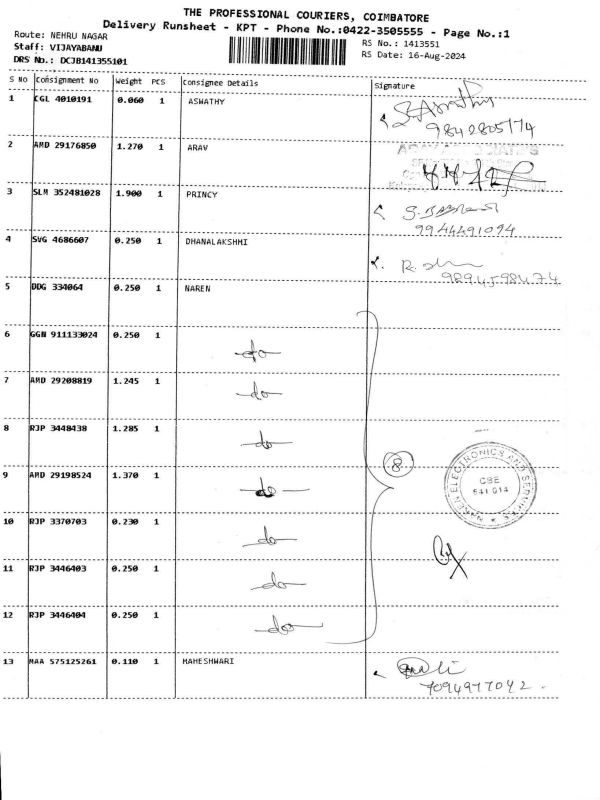 THE PROFESSIONAL COURIERS, COIMBATORE
Delivery Runsheet - KPT - Phone No.:0422-3505555 - Page No.:1
Route: NEHRU NAGAR
RS No.: 1413551
Staff: VIJAYABANU
RS Date: 16-Aug-2024
DRS No.: DCJB141355101
S NO Consignment No Weight PCS Consignee Details Signature
1 CGL 4010191 0.060 1 ASWATHY
9842805174
2 AMD 29176850 1.270 1 ARAV
3 SLM 352481028 1.900 1 PRINCY
9944491094
4 SVG 4686607 0.250 1 DHANALAKSHMI
9894598474
5 DDG 334064 0.250 1 NAREN
6 GGN 911133024 0.250 1 do
7 AMD 29208819 1.245 1 do
8 RJP 3448438 1.285 1 do
8
NAREN ELECTRONICS AND SERVICES
CBE
641 014
9 AMD 29198524 1.370 1 do
10 RJP 3370703 0.230 1 do
11 RJP 3446403 0.250 1 do
12 RJP 3446404 0.250 1 do
13 MAA 575125261 0.110 1 MAHESHWARI
7094977042